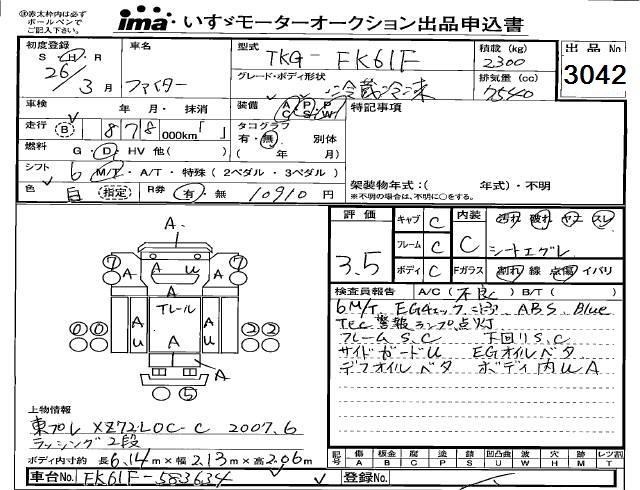 赤太枠内は必ずボールペンでご記入下さい。
ima いすゞモーターオークション出品申込書
初度登録 S・H・R 26 / 3 月
車名 ファイター
型式 TKG-FK61F
積載(kg) 2300
出品No 3042
グレード・ボディ形状 冷蔵冷凍
排気量(cc) 7540
車検 年・月・抹消
装備 AC PS PW
特記事項
走行 B 878 000km「 」
タコグラフ 有・無 別体( 年 月)
燃料 G・D・HV 他( )
シフト 6 M/T・A/T・特殊(2ペダル・3ペダル)
架装物年式:( 年式)・不明
※不明の場合は、不明に○をする。
色 白 指定 R券 有・無 10910 円
評価 3.5
キャブ C
フレーム C
ボディ C
内装 C
Fガラス
汚れ 破れ ヤニ スレ
シートエグレ
割れ 線 点傷 イバリ
検査員報告 A/C(不良) B/T( )
6M/T EGチェック ABS Blue
Tec警報ランプ点灯
フレームS,C 下回りS.C
サイドガードU EGオイルベタ
デフオイルベタ ボディ内UA
A
⑦ A A U A ⑦
A U Tレール A U
⓪⓪ ②②
A A
⑤
上物情報
東プレ XZ72L0C-C 2007.6
ラッシング2段
ボディ内寸約 長6.14m×幅2.13m×高2.06m
記号 傷 A 板金 B 腐 C 塗 P 錆 S 凹凸曲 U 波 W 穴 H 跡 M レツ割 T
車台No. FK61F-583634
登録No.